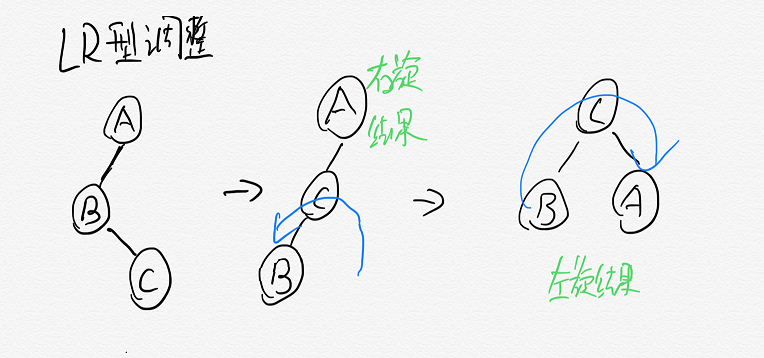 LR型调整
A
B
C
A
右旋
结果
C
B
C
B
A
左旋结果